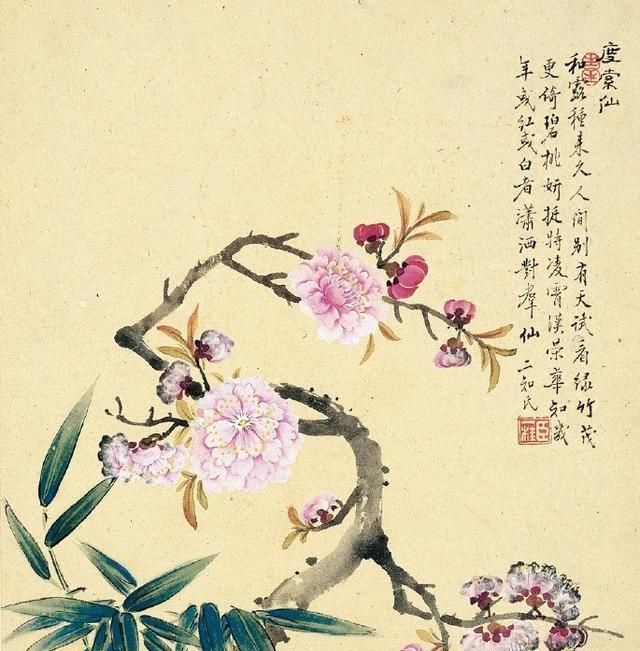 度索仙
和露種来久人間别有天試看緑竹茂
更倚碧桃妍挺特凌霄漢榮華知幾
年或紅或白者瀟洒對羣仙 二知氏
臣桂